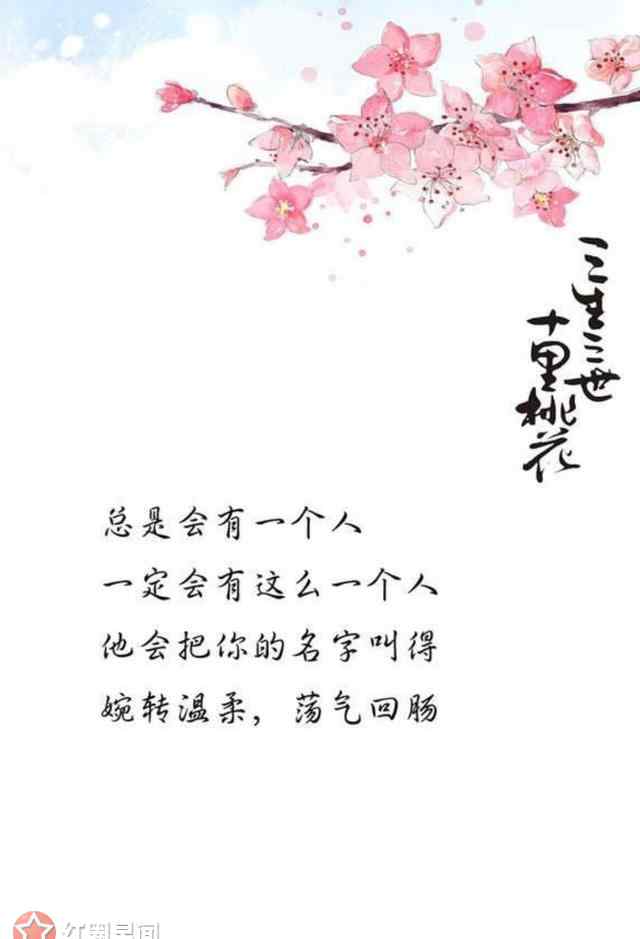 三生三世
十里桃花
总是会有一个人
一定会有这么一个人
他会把你的名字叫得
婉转温柔，荡气回肠